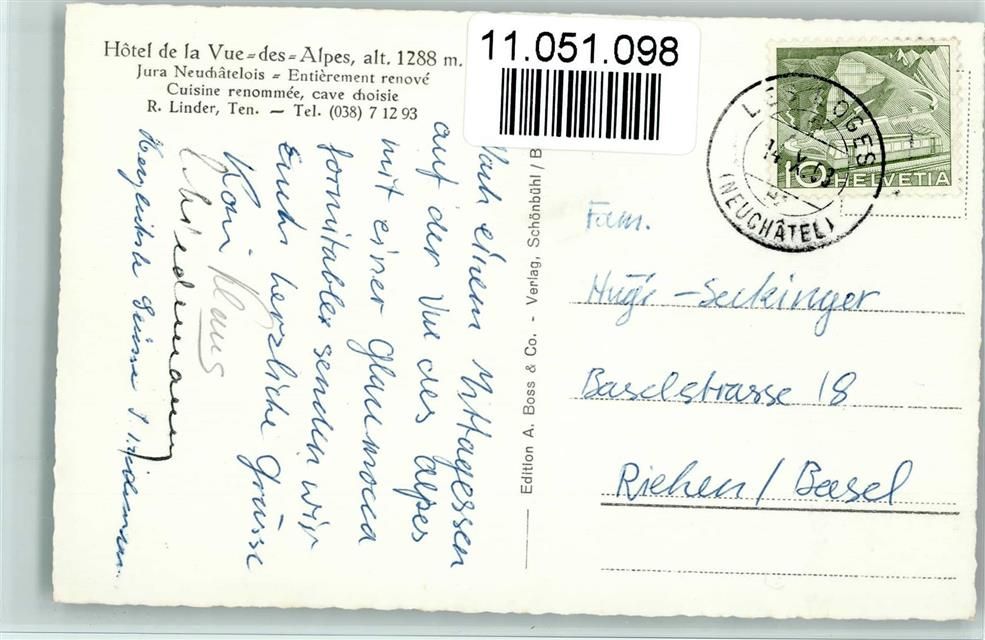 Hôtel de la Vue-des-Alpes, alt. 1288 m.
Jura Neuchâtelois - Entièrement renové
Cuisine renommée, cave choisie
R. Linder, Ten. — Tel. (038) 7 12 93
11.051.098
LES LOGES
14. V. 53
(NEUCHÂTEL)
10 HELVETIA
Nach einem Mittagessen
auf der Vue des alpes
mit einer
formitabler senden wir
Euch herzliche Grüsse
Klaus
Herzlichste Grüsse
Edition A. Boss & Co. - Verlag, Schönbühl / B
Fam.
Hügi-Seckinger
Baselstrasse 18
Riehen / Basel